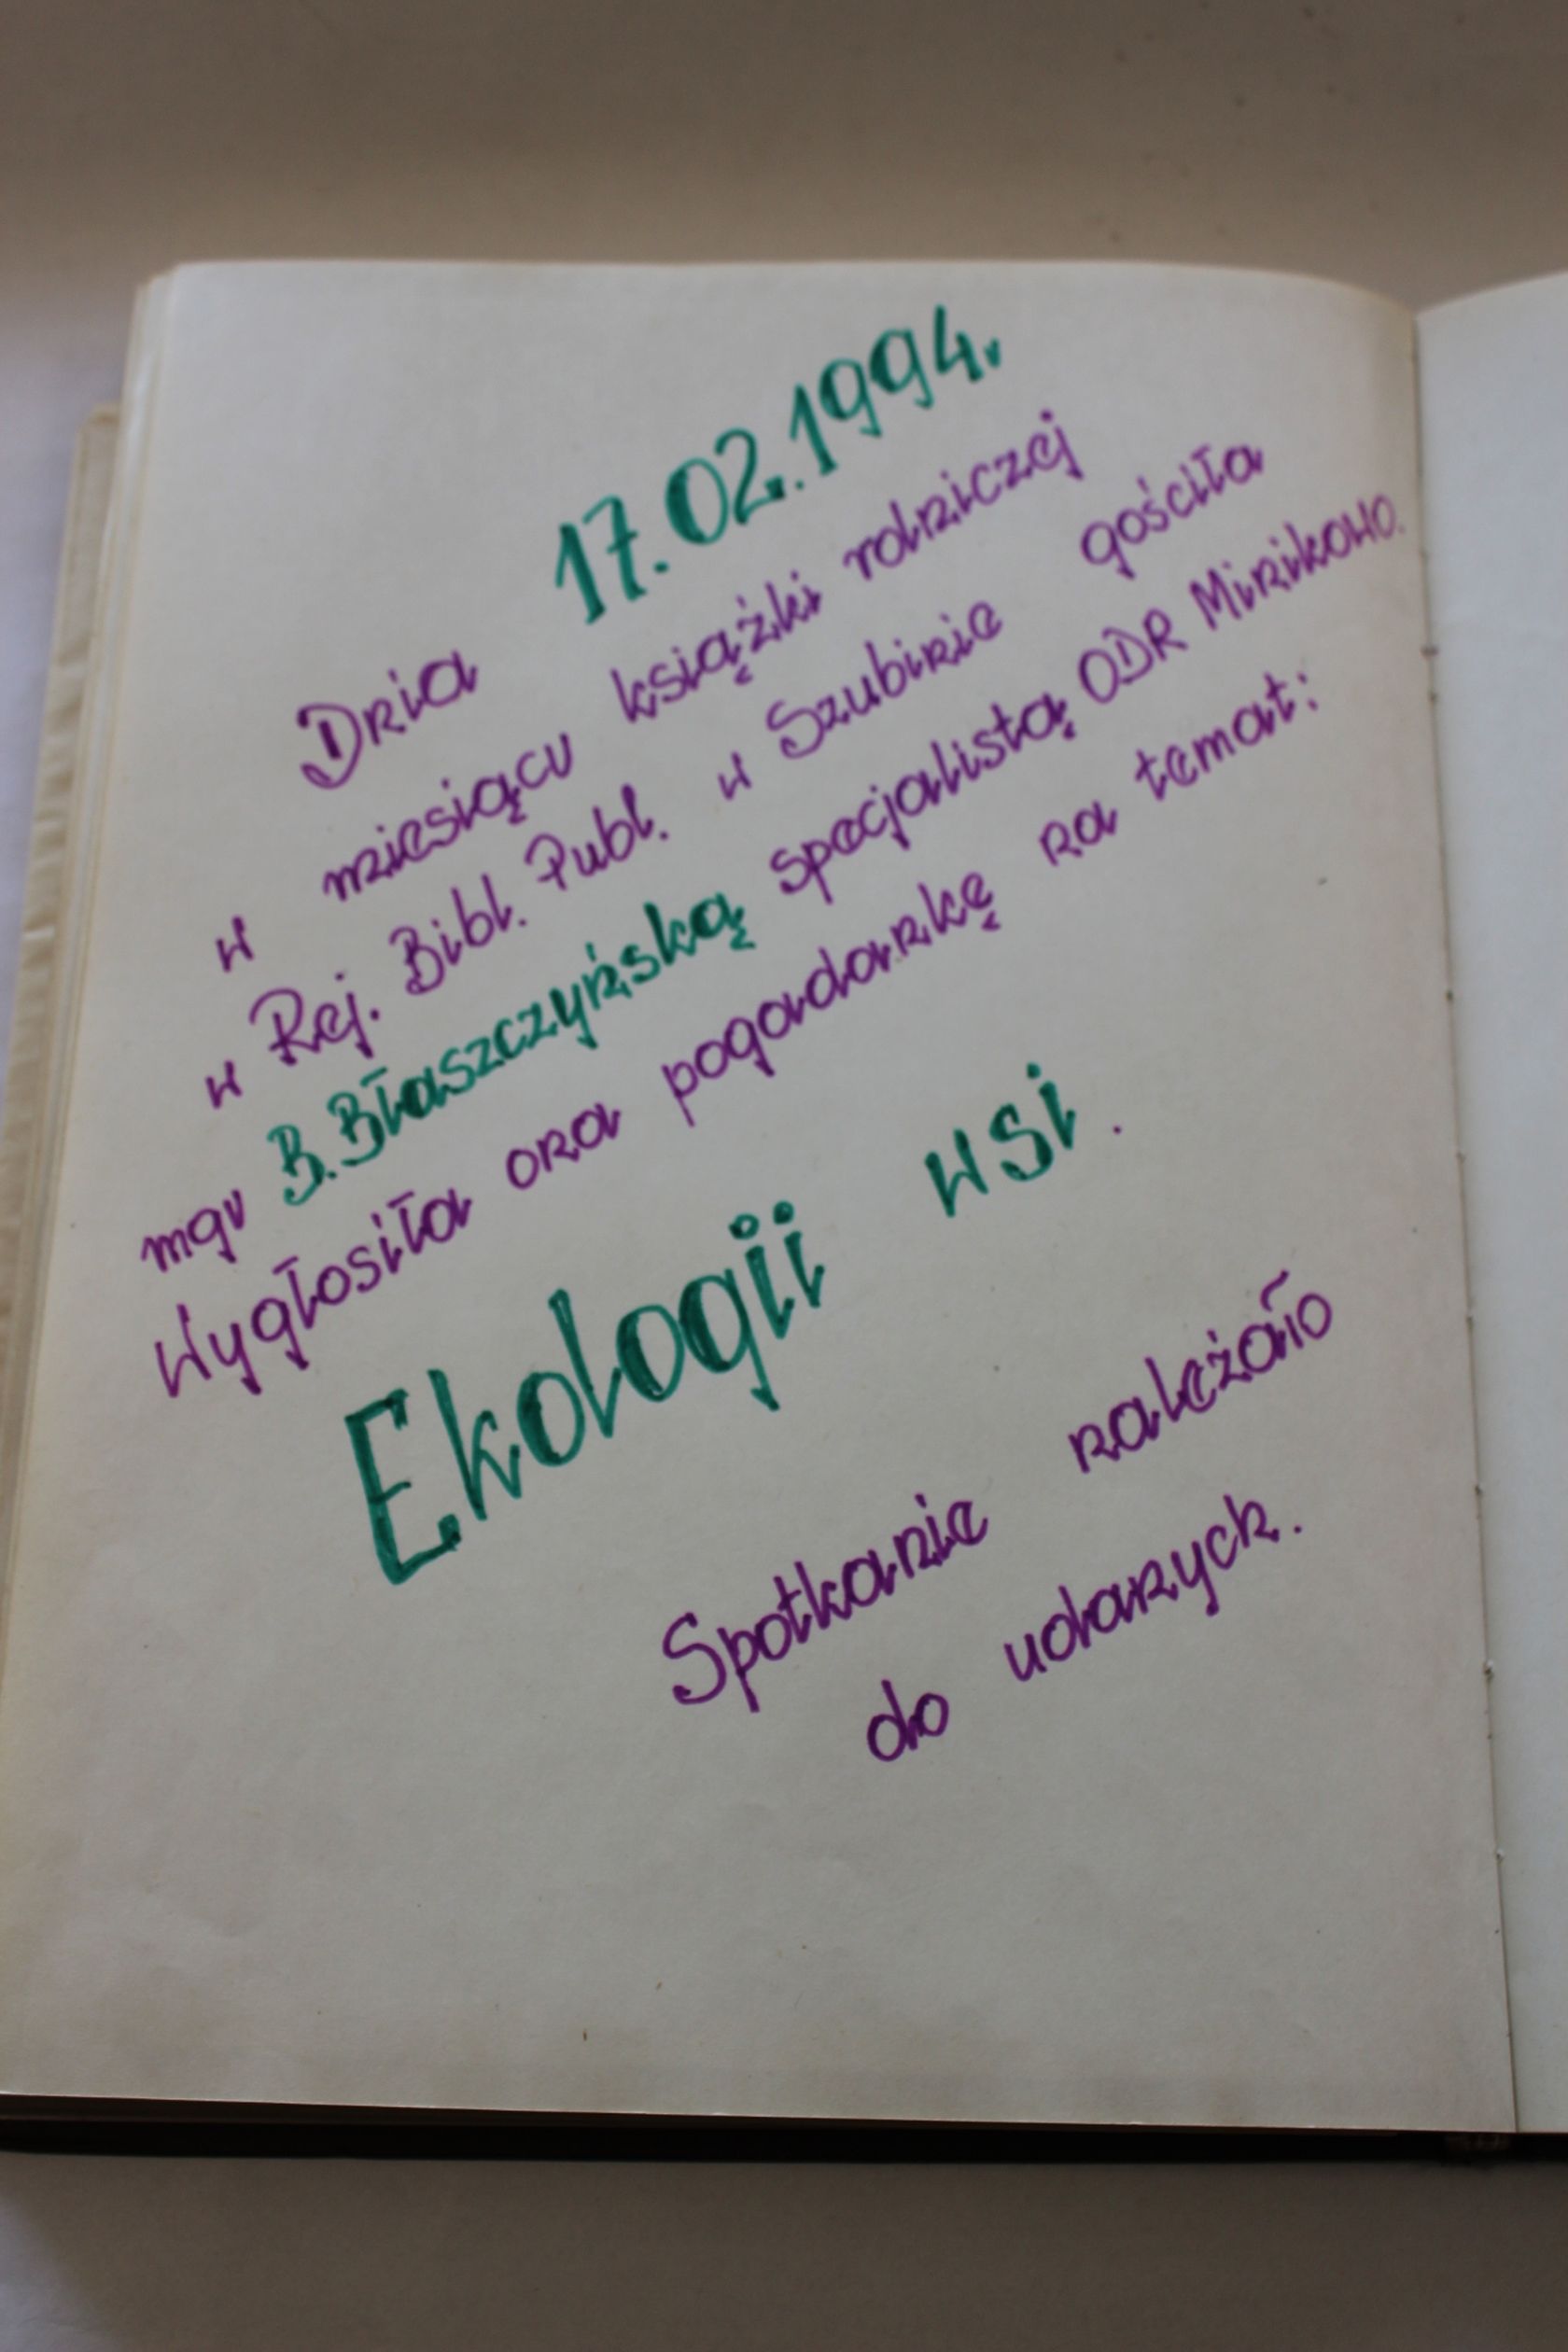 Dnia 17.02.1994r
w miesiącu książki rolniczej
w Rej. Bibl. Publ. w Szubinie gościła
mgr B. Błaszczyńską specjalistą ODR Minikowo.
Wygłosiła ona pogadankę na temat:
Ekologii wsi.
Spotkanie należało
do udanych.